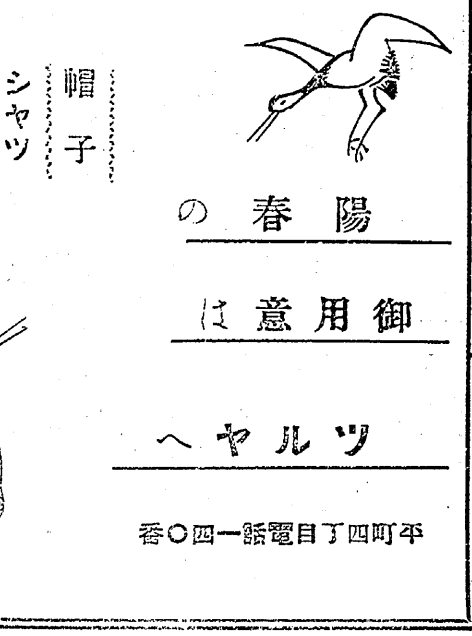 陽春の
御用意は
ツルヤへ
平町四丁目電話一四〇番
帽子
シャツ